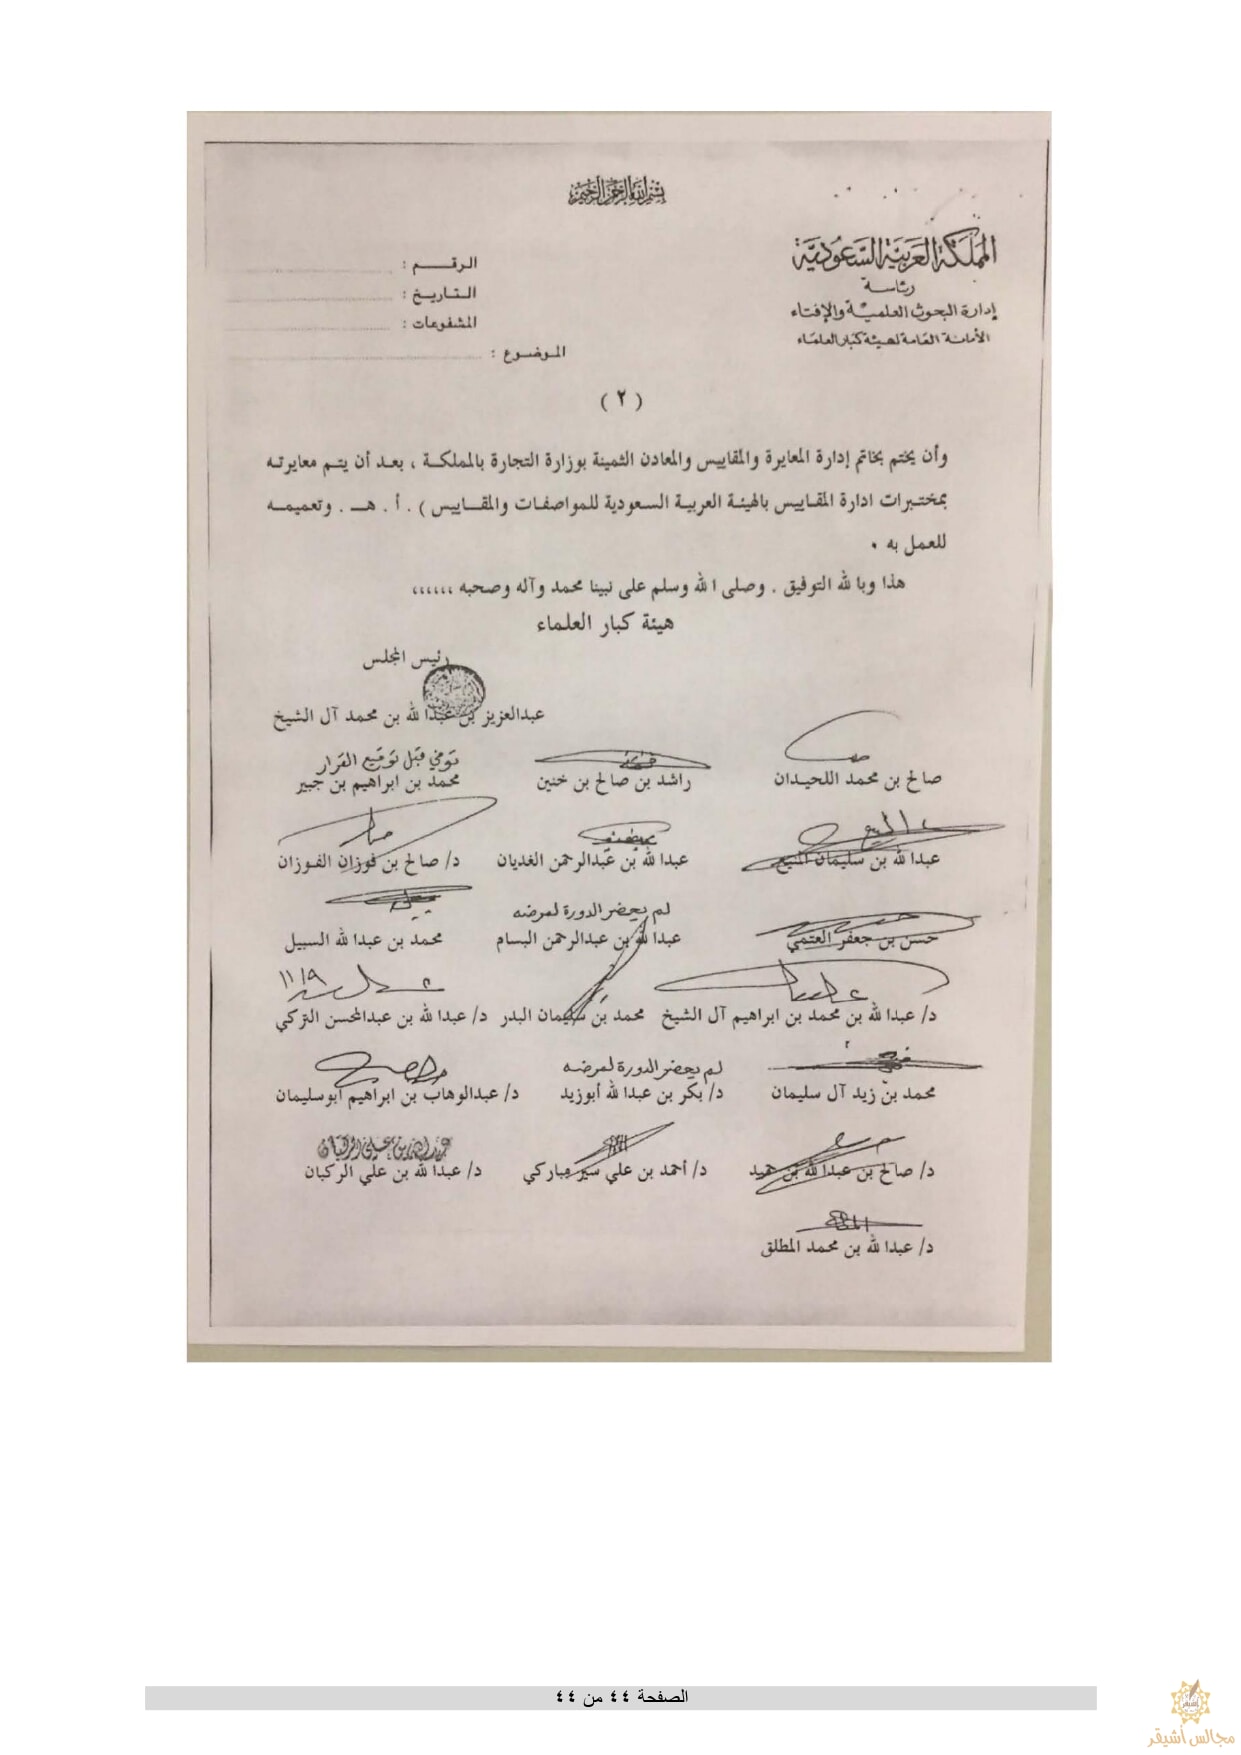 بسم الله الرحمن الرحيم
المملكة العربية السعودية
رئاسة
إدارة البحوث العلمية والإفتاء
الأمانة العامة لهيئة كبار العلماء
الرقم :
التاريخ :
المشفوعات :
الموضوع :
( ٢ )
وأن يختم بخاتم إدارة المعايرة والمقاييس والمعادن الثمينة بوزارة التجارة بالمملكة ، بعد أن يتم معايرته
بمختبرات ادارة المقاييس بالهيئة العربية السعودية للمواصفات والمقاييس ) . أ . هـ . وتعميمه
للعمل به .
هذا وبالله التوفيق . وصلى الله وسلم على نبينا محمد وآله وصحبه ،،،،،،
هيئة كبار العلماء
رئيس المجلس
عبدالعزيز بن عبدالله بن محمد آل الشيخ
توفي قبل توقيع القرار
صالح بن محمد اللحيدان راشد بن صالح بن خنين محمد بن ابراهيم بن جبير
عبدالله بن سليمان المنيع عبدالله بن عبدالرحمن الغديان د/ صالح بن فوزان الفوزان
لم يحضر الدورة لمرضه
حسن بن جعفر العتمي عبدالله بن عبدالرحمن البسام محمد بن عبدالله السبيل
١١/٩
د/ عبدالله بن محمد بن ابراهيم آل الشيخ محمد بن سليمان البدر د/ عبدالله بن عبدالمحسن التركي
لم يحضر الدورة لمرضه
محمد بن زيد آل سليمان د/ بكر بن عبدالله أبوزيد د/ عبدالوهاب بن ابراهيم أبوسليمان
عبدالله بن علي الركبان
د/ صالح بن عبدالله بن حميد د/ أحمد بن علي سير مباركي د/ عبدالله بن علي الركبان
د/ عبدالله بن محمد المطلق
الصفحة ٤٤ من ٤٤
مجالس أشيقر